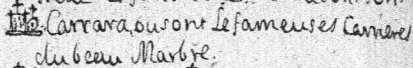 Carrara, ou sont Le fameuses Carrieres
du beau Marbre.